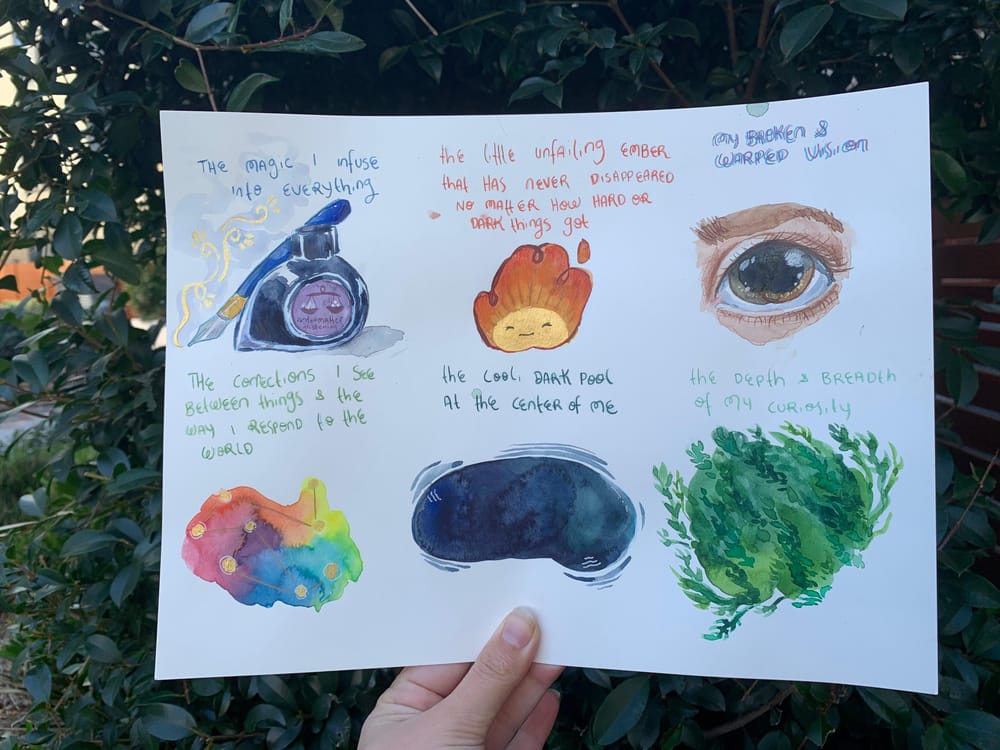 THE MAGIC I INFUSE
INTO EVERYTHING
the little unfailing EMBER
that HAS NEVER DISAPPEARED
NO MATTER HOW HARD OR
DARK things got
MY BROKEN &
WARPED VISION
THE CONNECTIONS I SEE
BETWEEN things & the
WAY I RESPOND to the
WORLD
the COOL, DARK POOL
At the CENTER OF ME
the DEPTH & BREADTH
OF MY CURIOSITY